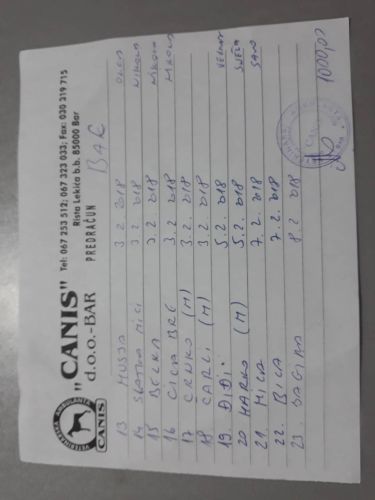 "CANIS"
d.o.o.-BAR
Tel: 067 253 512; 067 323 033; Fax: 030 319 715
Rista Lekića b.b. 85000 Bar
PREDRAČUN
BAR
VETERINARSKA AMBULANTA
CANIS
13 3.2 2018
14 3.2 2018 NIKOLA
15 BELKA 3.2 2018 NIKOLA
16 CICA BRE 3.2 2018 NIKOLA
17 CRNKO (M) 3.2. 2018
18 CARLI (M) 3.2. 2018
19. ĐIĐI 5.2. 2018
20 MARKO (M) 5.2. 2018
21. MICA 7.2. 2018
22. BICA 7.2. 2018
23. 8.2. 2018 1000,00